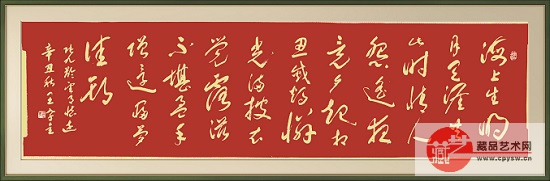 海上生明
月天涯共
此时情人
怨遥夜
竟夕起相
思灭烛怜
光满披衣
觉露滋
不堪盈手
赠还寝梦
佳期
张九龄望月怀远
辛丑秋王
藏品艺术网
www.cpysw.cn